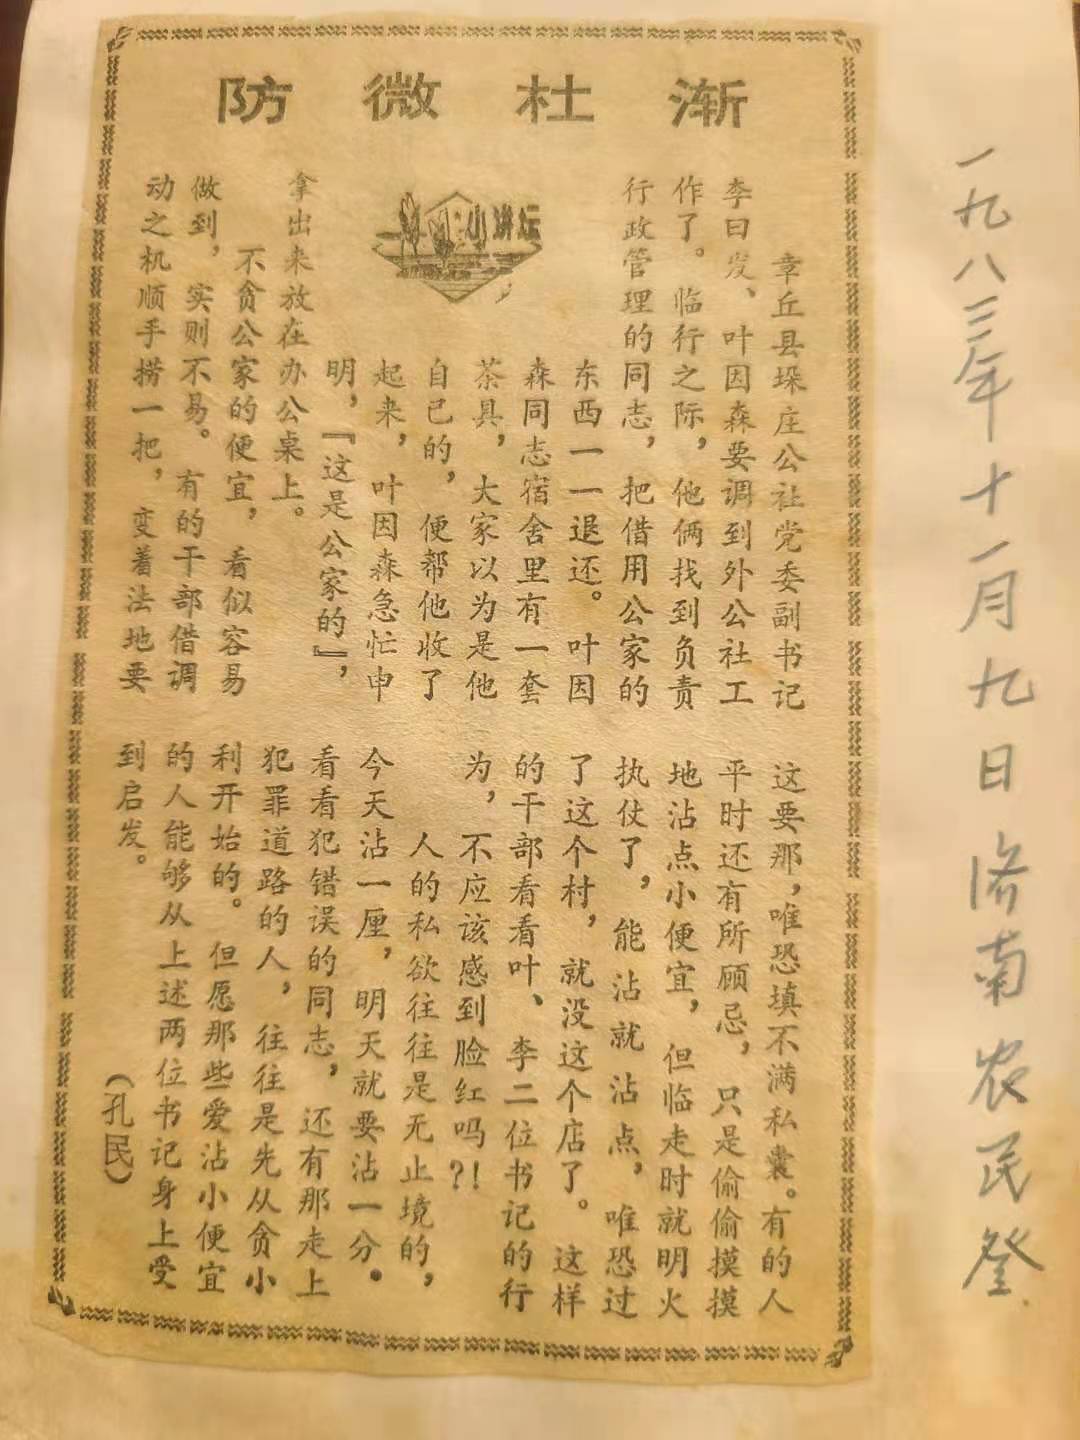 防微杜渐
小讲坛
章丘县垛庄公社党委副书记
李曰发、叶因森要调到外公社工
作了。临行之际，他俩找到负责
行政管理的同志，把借用公家的
东西一一退还。叶因
森同志宿舍里有一套
茶具，大家以为是他
自己的，便帮他收了
起来，叶因森急忙申
明，『这是公家的』，
拿出来放在办公桌上。
不贪公家的便宜，看似容易
做到，实则不易。有的干部借调
动之机顺手捞一把，变着法地要
这要那，唯恐填不满私囊。有的人
平时还有所顾忌，只是偷偷摸摸
地沾点小便宜，但临走时就明火
执仗了，能沾就沾点，唯恐过
了这个村，就没这个店了。这样
的干部看看叶、李二位书记的行
为，不应该感到脸红吗？！
人的私欲往往是无止境的，
今天沾一厘，明天就要沾一分。
看看犯错误的同志，还有那走上
犯罪道路的人，往往是先从贪小
利开始的。但愿那些爱沾小便宜
的人能够从上述两位书记身上受
到启发。
（孔民）
一九八三年十一月九日济南农民登